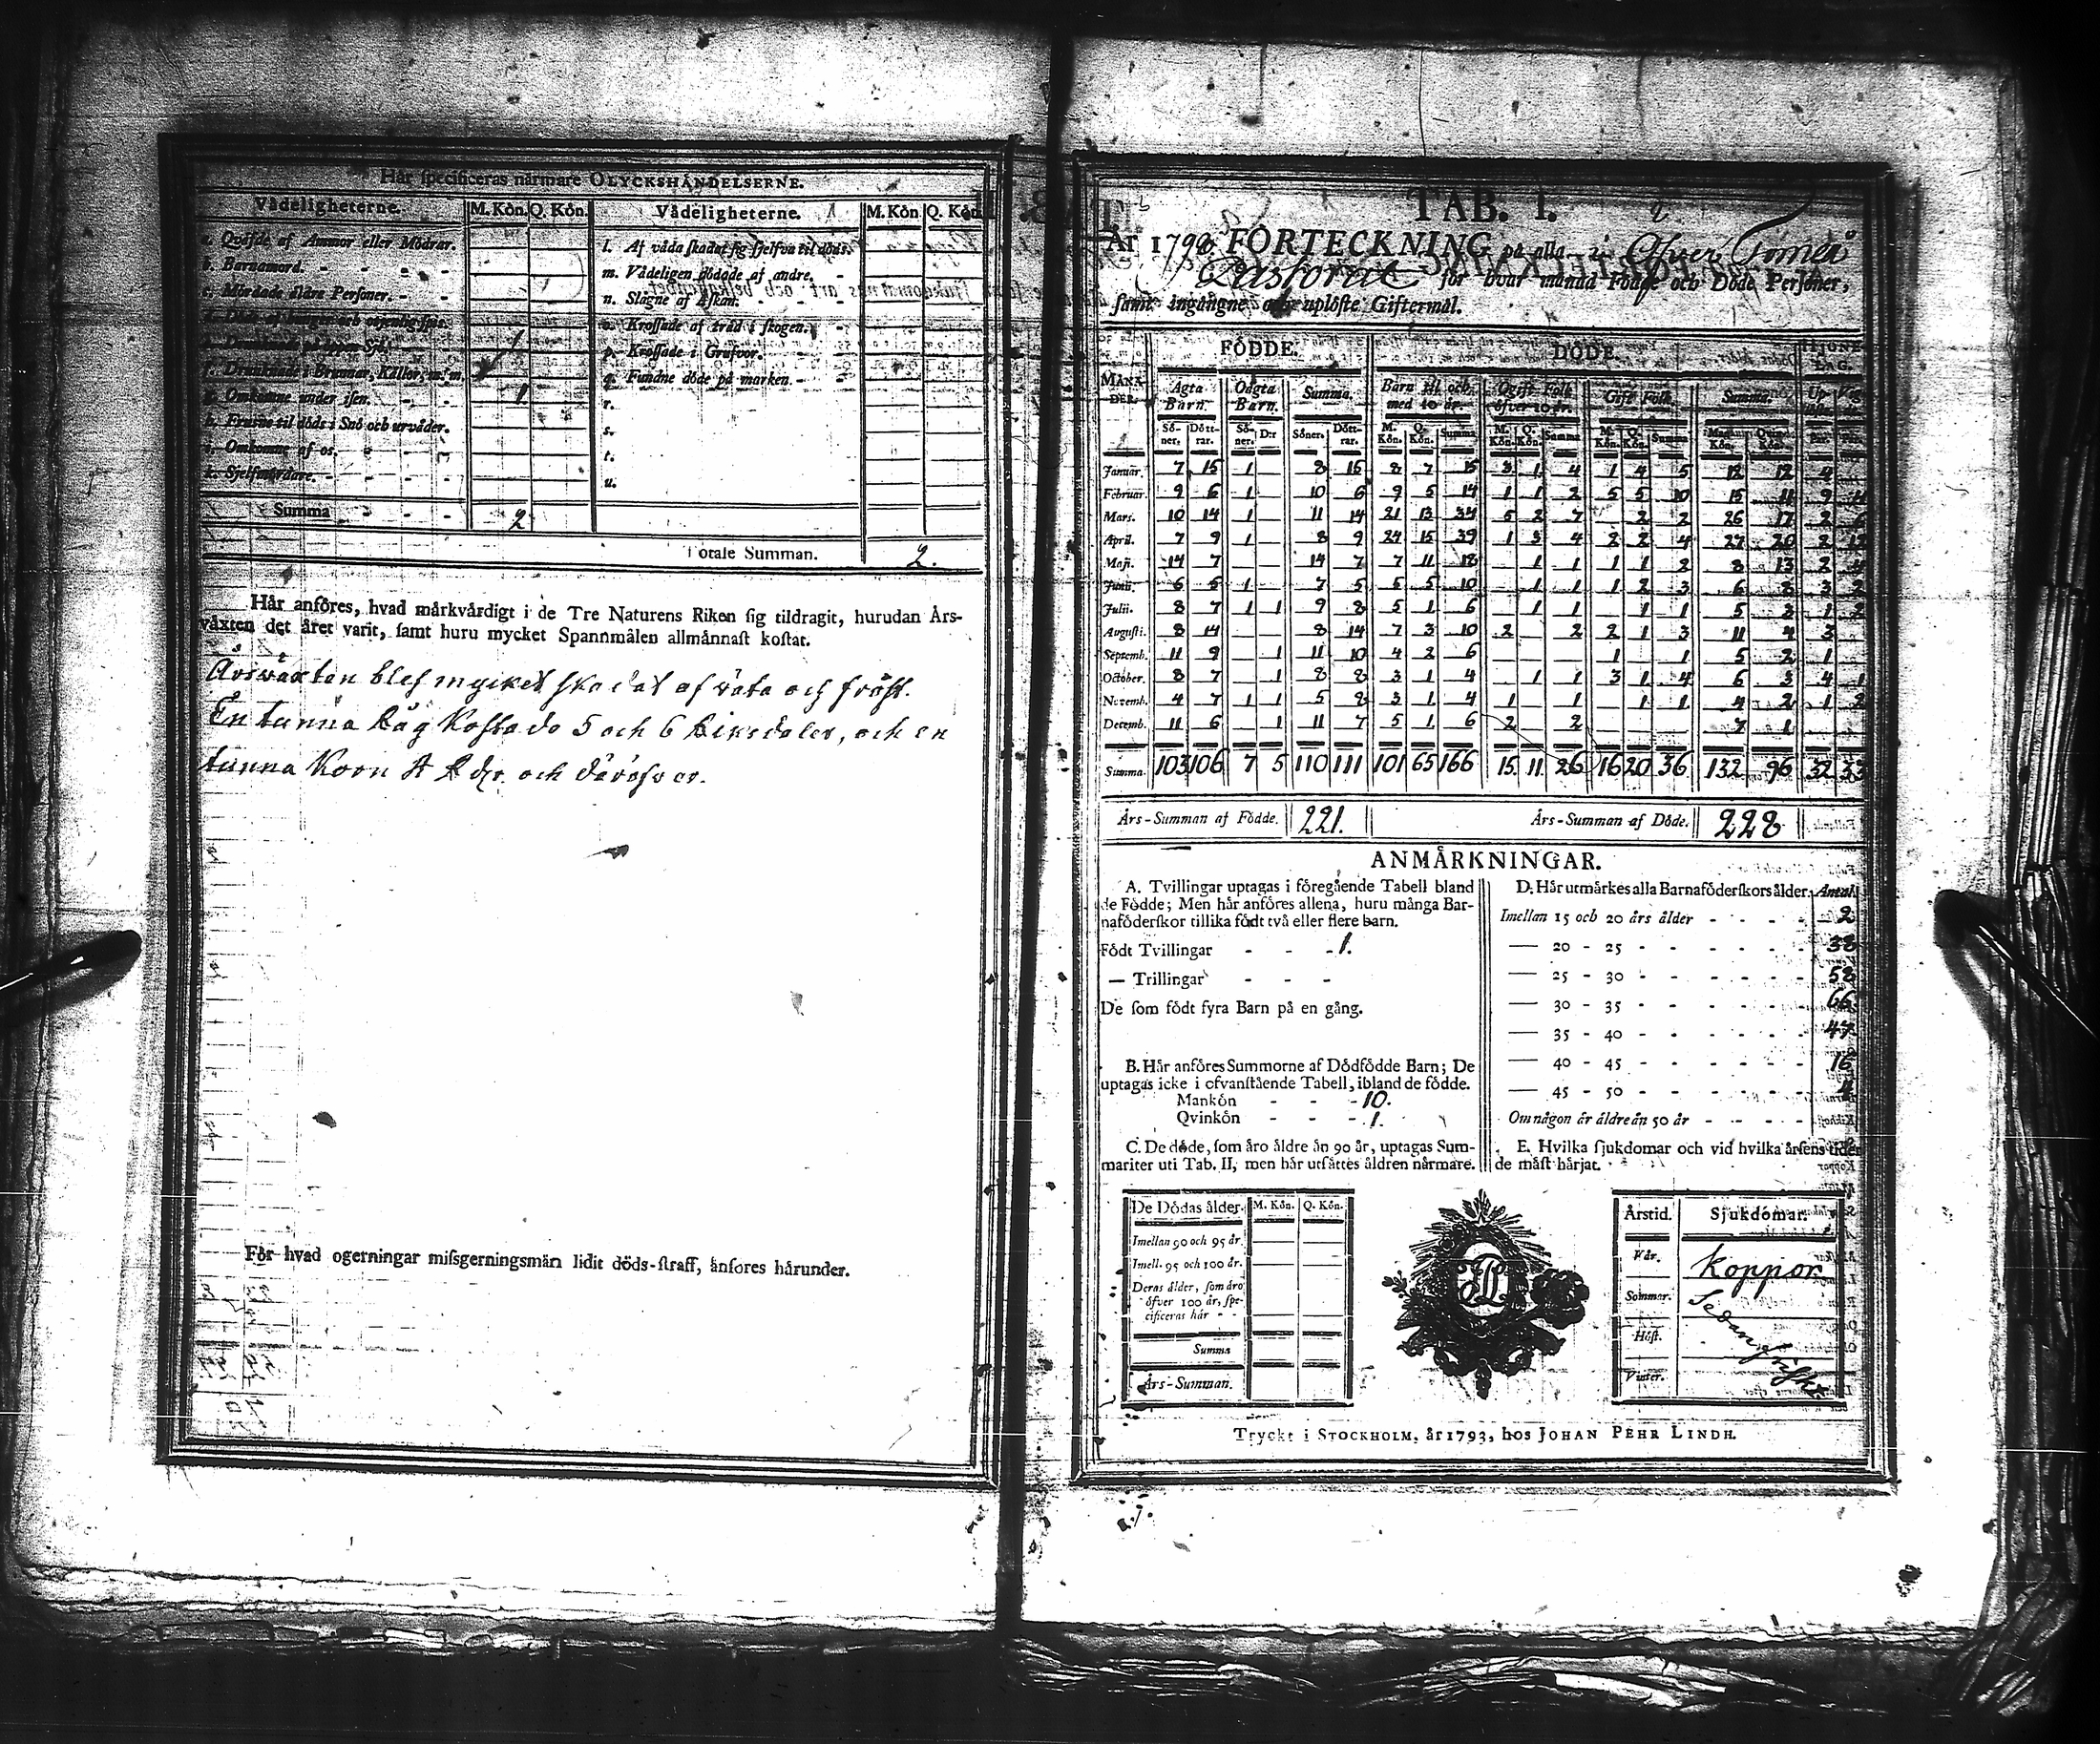 Hår specificeras nårmare OLYCKSHÅNDELSERNE.
Vådeligheterne. M. Kön. Q. Kön. Vådeligheterne. M. Kön. Q. Kön.
a. Qväfde af Ammor eller Mödrar.
b. Barnamord.
c. Mördade äldre Personer.
f. Drunknade i Brunnar, Källor, m. m.
g. Omkomne under isen. 1
h. Frusne til döds i Snö och urväder.
i. Omkomne af os.
k. Sjelfmördare.
Summa 2
l. Af våda skadat sig sjelfva til döds.
m. Vådeligen dödade af andre.
n. Slagne af Åskan.
o. Krossade af träd i skogen.
p. Krossade i Grufvor.
q. Fundne döde på marken.
r.
s.
t.
u.
Totale Summan. 2.
Hår anföres, hvad mårkvårdigt i de Tre Naturens Riken sig tildragit, hurudan Års-
våxten det året varit, samt huru mycket Spannmålen allmånnast kostat.
Årswäxten blef mycket skadat af wäta och fråst.
En tunna Råg Kostade 5 och 6 Riksdaler, och en
tunna Korn 4 Rdr och däröfver.
Får hvad ogerningar missgerningsmän lidit döds-straff, anfores hårunder.
TAB. I.
År 179 FÖRTECKNING på alla i Öfver Torneå
Pastorat för hvar månad Födde och Döde Personer,
samt ingångne och uplöste Giftermål.
FÖDDE. DÖDE. HJONE-LAG.
MÅNADER. Ägta Barn. Oägta Barn. Summa. Barn til och med 10 år. Ogift Folk öfver 10 år. Gift Folk. Summa.
Söner. Döttrar. Söner. D:r Söner. Döttrar. M. Kön. Q. Kön. Summa M. Kön. Q. Kön. Summa M. Kön. Q. Kön. Summa
Januar. 7 15 1 8 16 8 7 15 3 1 4 1 4 5 12 12 4
Februar. 9 6 1 10 6 9 5 14 1 1 2 5 5 10 15 11 9 4
Mars. 10 14 1 11 14 21 13 34 5 2 7 2 2 26 17 2 6
April. 7 9 1 8 9 24 15 39 1 3 4 2 2 4 27 20 2 12
Maji. 14 7 14 7 7 11 18 1 1 1 1 2 8 13 2 4
Junii. 6 5 1 7 5 5 5 10 1 1 1 2 3 6 8 3 2
Julii. 8 7 1 1 9 8 5 1 6 1 1 1 1 5 3 1 2
Augusti. 8 14 8 14 7 3 10 2 2 2 1 3 11 4 3
Septemb. 11 9 1 11 10 4 2 6 1 1 5 2 1
October. 8 7 1 8 8 3 1 4 1 1 3 1 4 6 3 4 1
Novemb. 4 7 1 1 5 8 3 1 4 1 1 1 1 4 2 1 2
Decemb. 11 6 1 11 7 5 1 6 2 2 7 1
Summa. 103 106 7 5 110 111 101 65 166 15. 11. 26 16 20 36 132 96 32 33
Års-Summan af Födde. 221. Års-Summan af Döde. 228
ANMÄRKNINGAR.
A. Tvillingar uptagas i föregående Tabell bland
de Födde; Men hår anföres allena, huru många Bar-
naföderskor tillika födt två eller flere barn.
Födt Tvillingar 1.
— Trillingar
De som födt fyra Barn på en gång.
B. Hår anföres Summorne af Dödfödde Barn; De
uptagas icke i ofvanstående Tabell, ibland de födde.
Mankön 10.
Qvinkön 1.
C. De döde, som äro äldre än 90 år, uptagas Sum-
mariter uti Tab. II, men hår utsättes åldren nårmare.
D. Hår utmårkes alla Barnaföderskors ålder. Antal
Imellan 15 och 20 års ålder 2
— 20 - 25 38
— 25 - 30 58
— 30 - 35 66
— 35 - 40 47
— 40 - 45 16
— 45 - 50
Om någon är äldre än 50 år
E. Hvilka sjukdomar och vid hvilka årsens tider
de måst hårjat.
De Dödas ålder. M. Kön. Q. Kön.
Imellan 90 och 95 år.
Imell. 95 och 100 år.
Deras ålder, som äro
öfver 100 år, spe-
cificeras här
Summa
Års-Summan.
Årstid. Sjukdomar.
Vår. Koppor
Sommar. Sedan
Höst.
Vinter.
Tryckt i STOCKHOLM, år 1793, hos JOHAN PEHR LINDH.